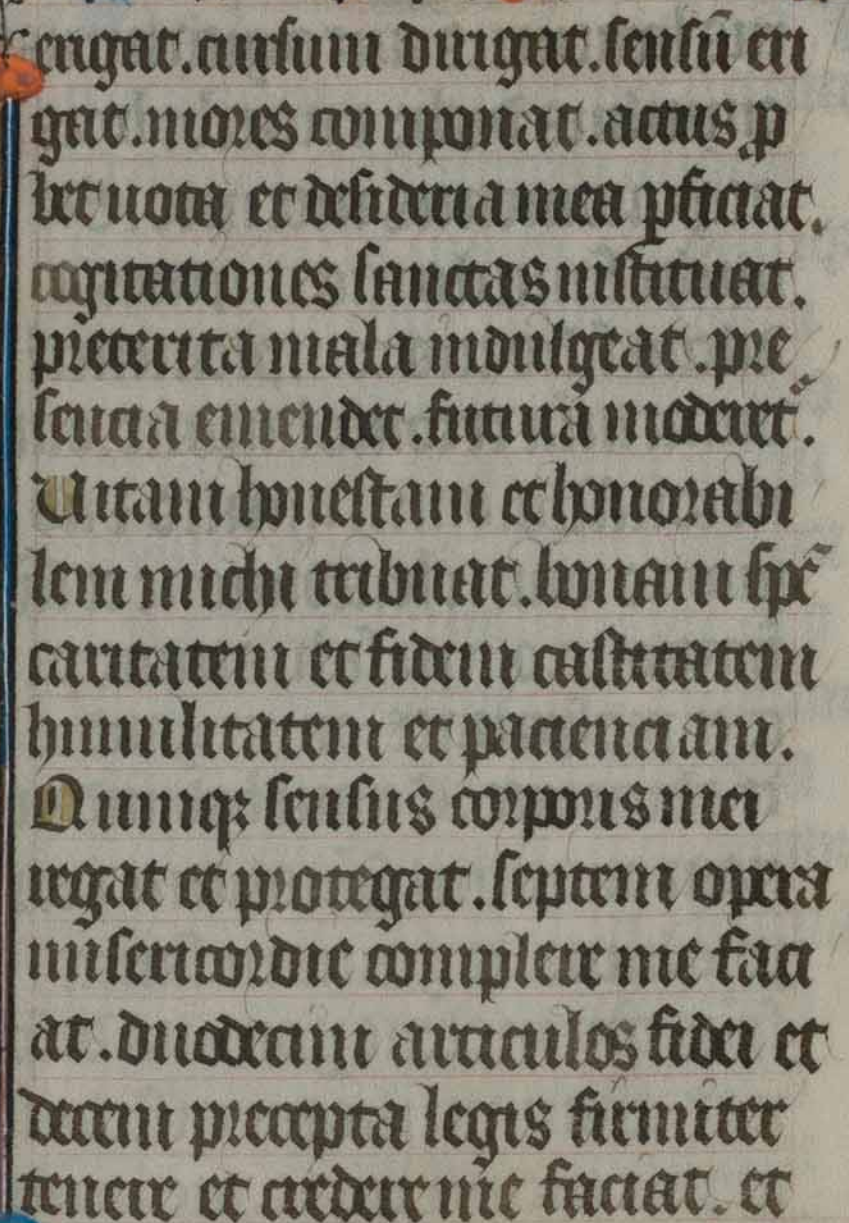 erigat.cursum dirigat.sensū eri
gat.mores componat.actus p̱
bet uota et desideria mea ꝑficiat.
cogitationes sanctas instituat.
preterita mala indulgeat.pre
sencia emendet.futura moderet᷑.
Uitam honestam et honorabi
lem michi tribuat.bonam spē
caritatem et fidem castitatem
humilitatem et pacienciam.
Quinqꝫ sensus corporis mei
regat et protegat.septem opera
misericordie complere me faci
at.duodecim articulos fidei et
decem precepta legis firmiter
tenere et credere me faciat.et